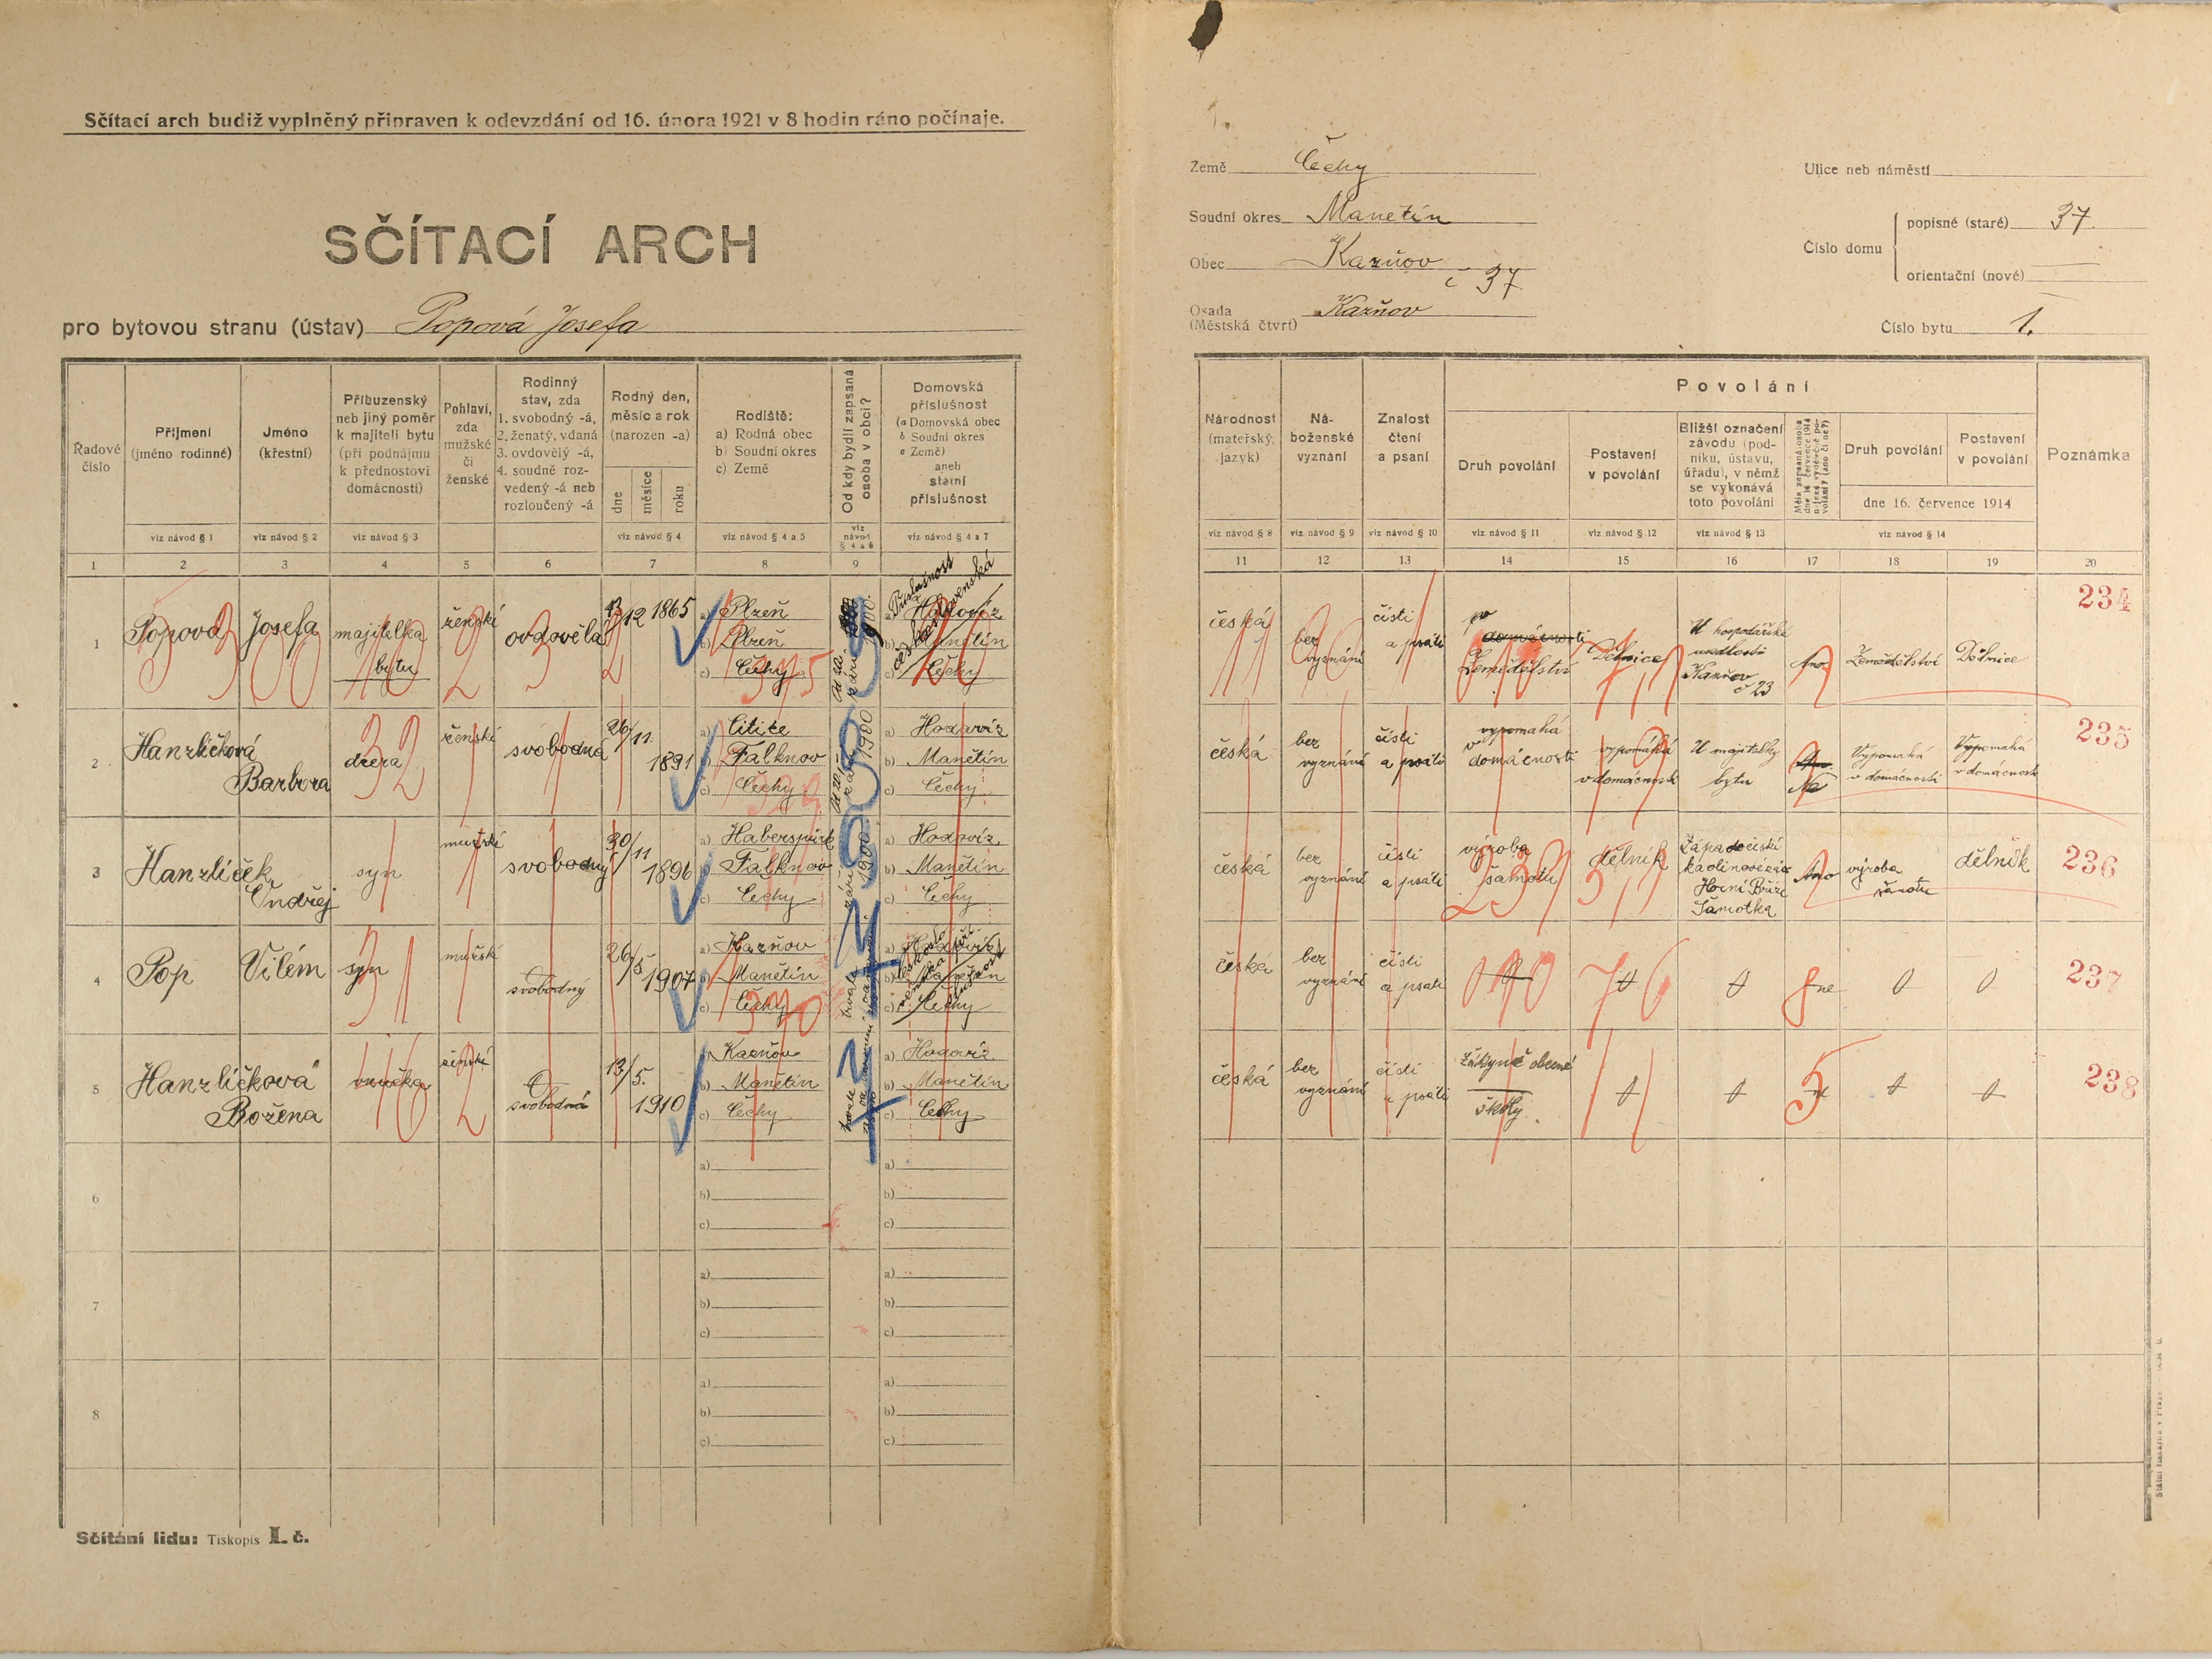 Sčítací arch budiž vyplněný připraven k odevzdání od 16. února 1921 v 8 hodin ráno počínaje.
SČÍTACÍ ARCH
pro bytovou stranu (ústav) Popová Josefa
Země Čechy
Soudní okres Manětín
Obec Kazňov
č 37
Osada
(Městská čtvrť) Kazňov
Ulice neb náměstí
Číslo domu
popisné (staré) 37.
orientační (nové)
Číslo bytu 1.
Řadové číslo
Příjmení (jméno rodinné)
Jméno (křestní)
Příbuzenský neb jiný poměr k majiteli bytu (při podnájmu k přednostovi domácnosti)
Pohlaví, zda mužské či ženské
Rodinný stav, zda 1. svobodný -á, 2. ženatý, vdaná 3. ovdovělý -á, 4. soudně rozvedený -á neb rozloučený -á
Rodný den, měsíc a rok (narozen -a)
dne měsíce roku
Rodiště: a) Rodná obec b) Soudní okres c) Země
Od kdy bydlí zapsaná osoba v obci?
Domovská příslušnost (a Domovská obec b Soudní okres c Země) aneb státní příslušnost
Národnost (mateřský jazyk)
Náboženské vyznání
Znalost čtení a psaní
Povolání
Druh povolání
Postavení v povolání
Bližší označení závodu (podniku, ústavu, úřadu), v němž se vykonává toto povolání
Měla zapsaná osoba dne 16. července 1914 nějaké výdělečné povolání? (ano či ne?)
Druh povolání
Postavení v povolání
dne 16. července 1914
Poznámka
viz návod § 1 viz návod § 2 viz návod § 3 viz návod § 4 viz návod § 4 a 5 viz návod § 4 a 6 viz návod § 4 a 7
viz návod § 8 viz návod § 9 viz návod § 10 viz návod § 11 viz návod § 12 viz návod § 13 viz návod § 14
1 2 3 4 5 6 7 8 9 10
11 12 13 14 15 16 17 18 19 20
1 Popová Josefa majitelka bytu ženské ovdovělá 12 1865
a) Plzeň
b) Plzeň
c) Čechy
Čechy
česká bez vyznání čísti a psáti Zemědělství Dělnice U hospodářské usedlosti Kazňov č 23 Ano Zemědělství Dělnice 234
2 Hanzlíčková Barbora dcera ženské svobodná 26/11. 1891
a) Citice
b) Falknov
c) Čechy
1900
a) Hodovíz
b) Manětín
c) Čechy
česká bez vyznání čísti a psáti vypomáhá v domácnosti vypomáhá v domácnosti U majitelky bytu Ne Vypomáhá v domácnosti Vypomáhá v domácnosti 235
3 Hanzlíček Ondřej syn mužské svobodný 30/11 1896
a) Haberspirk
b) Falknov
c) Čechy
září 1900.
a) Hodovíz
b) Manětín
c) Čechy
česká bez vyznání čísti a psáti výroba šamotu dělník Západočeské kaolinové Horní Bříza Šamotka Ano výroba šamotu dělník 236
4 Pop Vilém syn mužské svobodný 26/5 1907
a) Kazňov
b) Manětín
c) Čechy
a) Hodovíz
b) Manětín
c) Čechy
česká bez vyznání čísti a psáti 0 0 0 ne 0 0 237
5 Hanzlíčková Božena vnučka ženské svobodná 13/5. 1910
a) Kazňov
b) Manětín
c) Čechy
a) Hodovíz
b) Manětín
c) Čechy
česká bez vyznání čísti a psáti žákyně obecné školy 0 0 0 0 238
6 a) b) c) a) b) c)
7 a) b) c) a) b) c)
8 a) b) c) a) b) c)
Sčítání lidu: Tiskopis I. č.